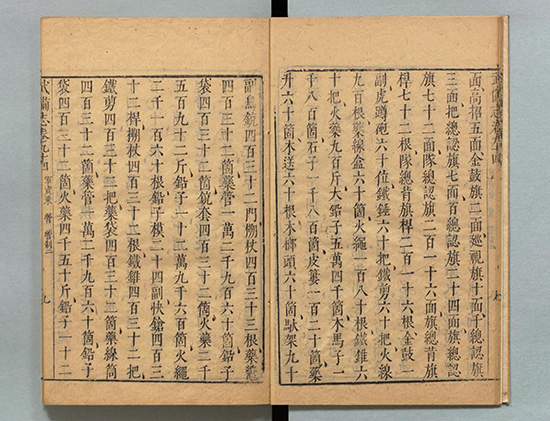 面高招五面金鼓旗二面巡視旗十面千總認旗
三面把總認旗七面百總認旗二十四面旗總認
旗七十二面隊總認旗二百一十六面旗總背旗
桿七十二根隊總背旗桿二百一十六根金鼓一
副虎蹲砲六十位鐵錘六十把鐵剪六十把火線
九百根藥線盒六十箇火繩一百八十根鐵錐六
十把火藥九百斤大鉛子五萬四千箇木馬子一
千八百箇石子一千八百箇皮簍一百二十箇藥
升六十箇木送六十根木榔頭六十箇馱架九十
副鳥銃四百三十二門搠杖四百三十三根藥
四百三十二箇藥管一萬二千九百六十箇鉛子
袋四百三十二箇銃套四百三十二箇火藥二千
五百九十二斤鉛子一十二萬九千六百箇火繩
二千一百六十根鉛子模二十四副快鎗四百三
十二桿搠杖四百三十二根鐵錐四百三十二把
鐵剪四百三十二把藥袋四百三十二箇藥線筒
四百三十二箇藥管一萬二千九百六十箇鉛子
袋四百三十二箇火藥四千五十斤鉛子一十二
武備志卷九十四 軍資乘 營 營制三 九